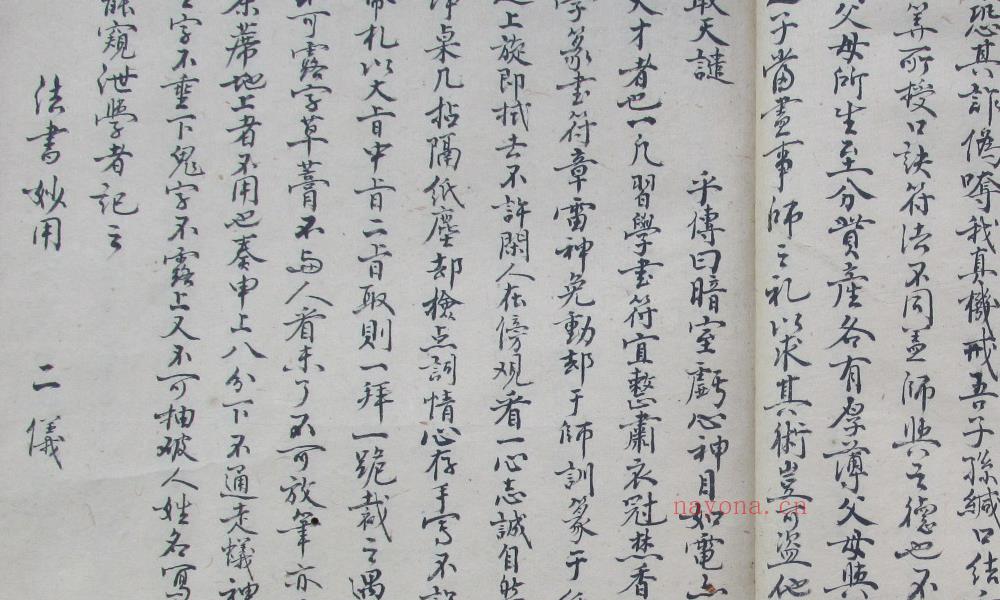 恐其部偽嘮我真機戒吾子孫緘口結
筭所授口訣符法不同盖師與之德也不
父母所生至分貲産各有厚薄父母與
子當盡事師之礼以求其術豈可盜他
天譴 乎傳曰暗室虧心神目如電
才者也一凡習學書符宜整肅衣冠焚香
学篆書符章雷神免動却于師訓篆于
上旋即拭去不許閑人在傍观看一心志誠自然
桌几拈隔紙塵却檢点詞情心存手寫不
札以大旨中旨二旨取則一拜一跪裁之遇
可露字草藁不与人看未了不可放筆亦
蓆地上者不用也奏申上八分下不通走蟻神
字不垂下鬼字不露上又不可抽破人姓名寫
窺泄学者記之
法書妙用 二儀
nayona.cn